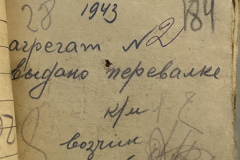 28 1943 184
агрегат № 2
выдано перевалке
к/м
возчик